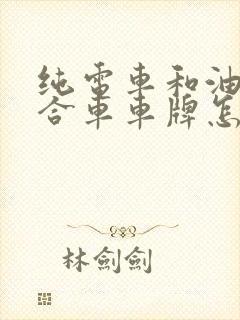 纯電車和油
合車車牌怎
林劍劍